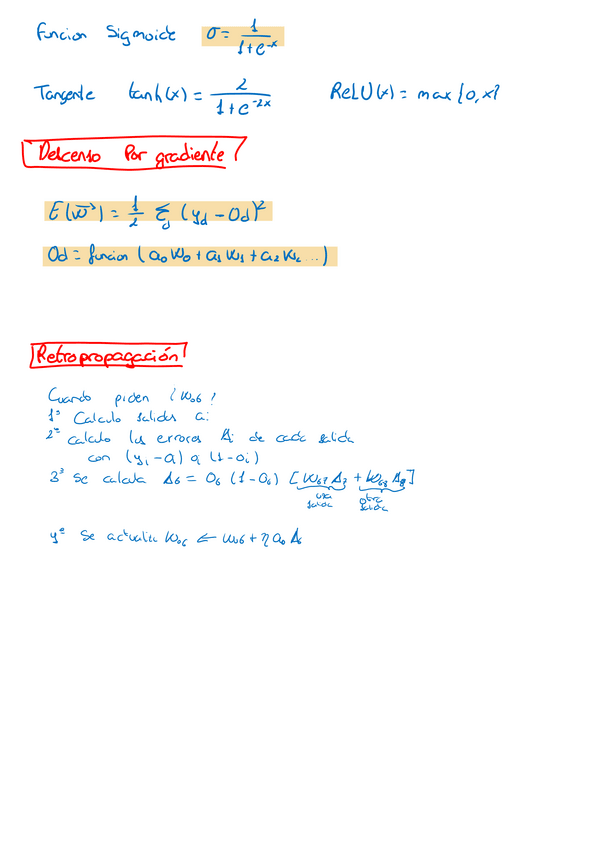 Funcion Sigmoide σ = 1/(1+e^-x)
Tangente tanh(x) = 2/(1+e^-2x) ReLU(x) = max{0,x}
Descenso Por gradiente
E(w⃗) = 1/2 Σ_d (y_d - O_d)²
Od = funcion (a₀W₀ + a₁W₁ + a₂W₂ ...)
Retropropagación
Cuando piden ¿W₀₆?
1º Calculo salidas ai
2º calculo los errores Δi de cada salida
con (yi - ai) ai (1 - ai)
3º Se calcula Δ₆ = O₆ (1 - O₆) [W₆₇ Δ₇ + W₆₈ Δ₈]
una salida otra salida
4º Se actualiza W₀₆ ← W₀₆ + η a₀ Δ₆